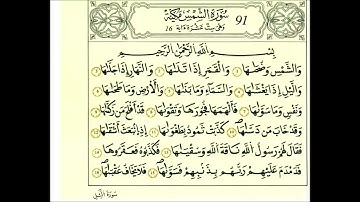 سُورَةُ الشَّمْسِ مَكِّيَّة 91
وَهْيَ سِتَّ عَشْرَةَ ءَايَة 16
بِسْمِ اللَّهِ الرَّحْمَٰنِ الرَّحِيمِ
وَالشَّمْسِ وَضُحَىٰهَا وَالْقَمَرِ إِذَا تَلَىٰهَا وَالنَّهَارِ إِذَا جَلَّىٰهَا
وَالَّيْلِ إِذَا يَغْشَىٰهَا وَالسَّمَآءِ وَمَا بَنَىٰهَا وَالْأَرْضِ وَمَا طَحَىٰهَا
وَنَفْسٍ وَمَا سَوَّىٰهَا فَأَلْهَمَهَا فُجُورَهَا وَتَقْوَىٰهَا قَدْ أَفْلَحَ مَن زَكَّىٰهَا
وَقَدْ خَابَ مَن دَسَّىٰهَا كَذَّبَتْ ثَمُودُ بِطَغْوَىٰهَا إِذِ انۢبَعَثَ أَشْقَىٰهَا
فَقَالَ لَهُمْ رَسُولُ اللَّهِ نَاقَةَ اللَّهِ وَسُقْيَٰهَا فَكَذَّبُوهُ فَعَقَرُوهَا
فَدَمْدَمَ عَلَيْهِمْ رَبُّهُم بِذَنۢبِهِمْ فَسَوَّىٰهَا فَلَا يَخَافُ عُقْبَٰهَا
سورة اليل